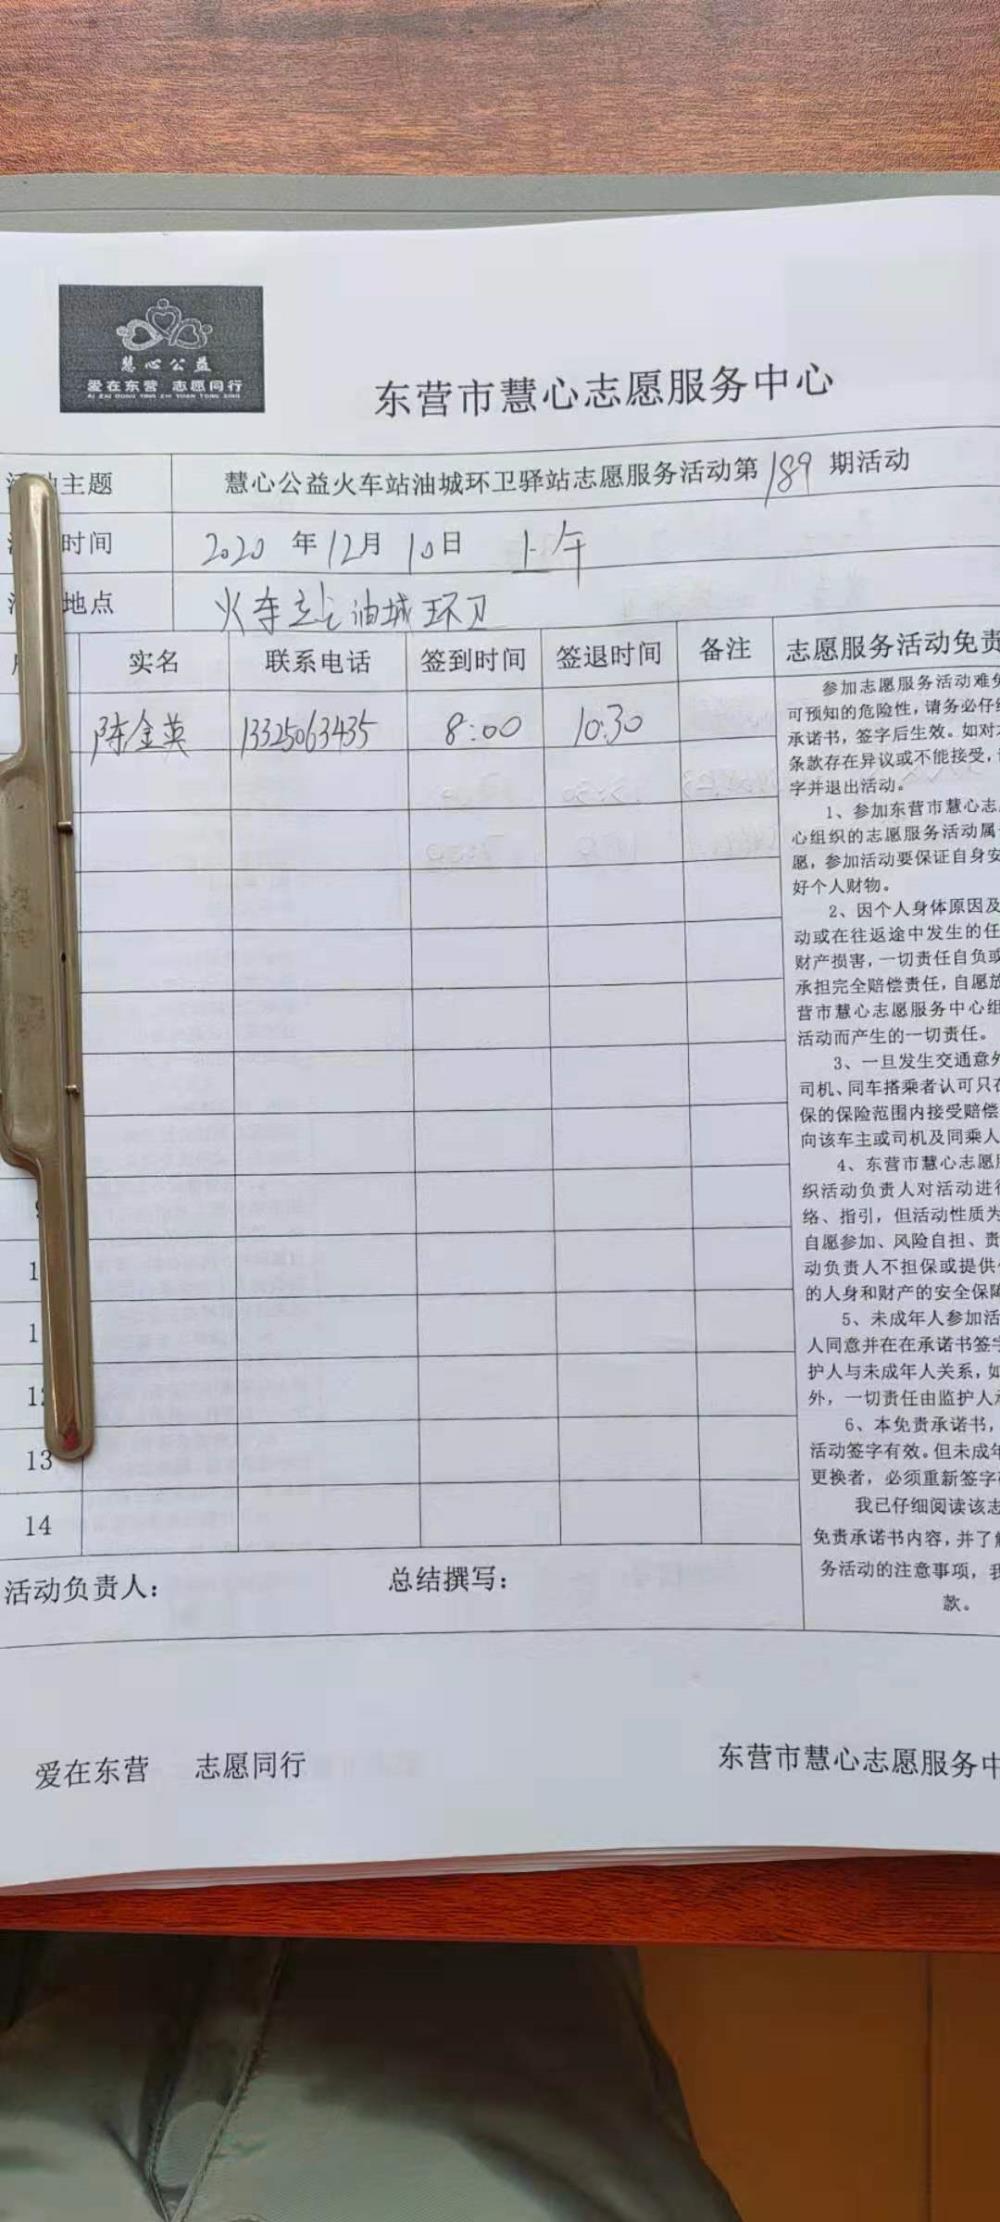 慧心公益
爱在东营 志愿同行
AI ZAI DONG YING ZHI YUAN TONG XING
东营市慧心志愿服务中心
主题 慧心公益火车站油城环卫驿站志愿服务活动第189期活动
时间 2020 年 12月 10日 上午
地点 火车站油城环卫
实名 联系电话 签到时间 签退时间 备注 志愿服务活动免责
陈金英 13325063435 8:00 10:30
参加志愿服务活动难免
可预知的危险性，请务必仔细
承诺书，签字后生效。如对
条款存在异议或不能接受，
字并退出活动。
1、参加东营市慧心志
心组织的志愿服务活动属
愿，参加活动要保证自身安
好个人财物。
2、因个人身体原因及
动或在往返途中发生的任
财产损害，一切责任自负或
承担完全赔偿责任，自愿放
营市慧心志愿服务中心组
活动而产生的一切责任。
3、一旦发生交通意外
司机、同车搭乘者认可只在
保的保险范围内接受赔偿
向该车主或司机及同乘人
4、东营市慧心志愿
织活动负责人对活动进行
络、指引，但活动性质为
自愿参加、风险自担、责
动负责人不担保或提供
的人身和财产的安全保障
5、未成年人参加活
人同意并在在承诺书签字
护人与未成年人关系，如
外，一切责任由监护人承
6、本免责承诺书，
活动签字有效。但未成年
更换者，必须重新签字
我已仔细阅读该志
免责承诺书内容，并了解
务活动的注意事项，我
款。
12
13
14
活动负责人： 总结撰写：
爱在东营 志愿同行 东营市慧心志愿服务中